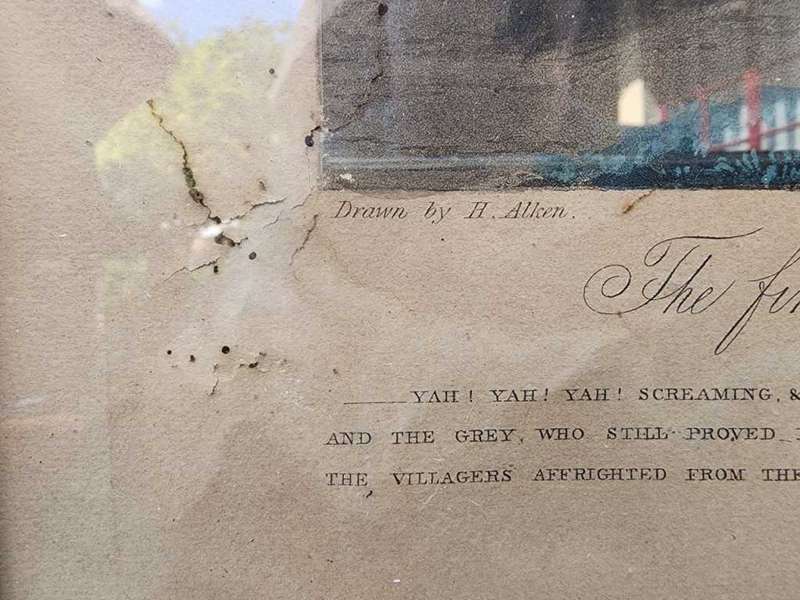 Drawn by H. Alken.
The
YAH! YAH! YAH! SCREAMING, &
AND THE GREY, WHO STILL PROVED
THE VILLAGERS AFFRIGHTED FROM THE